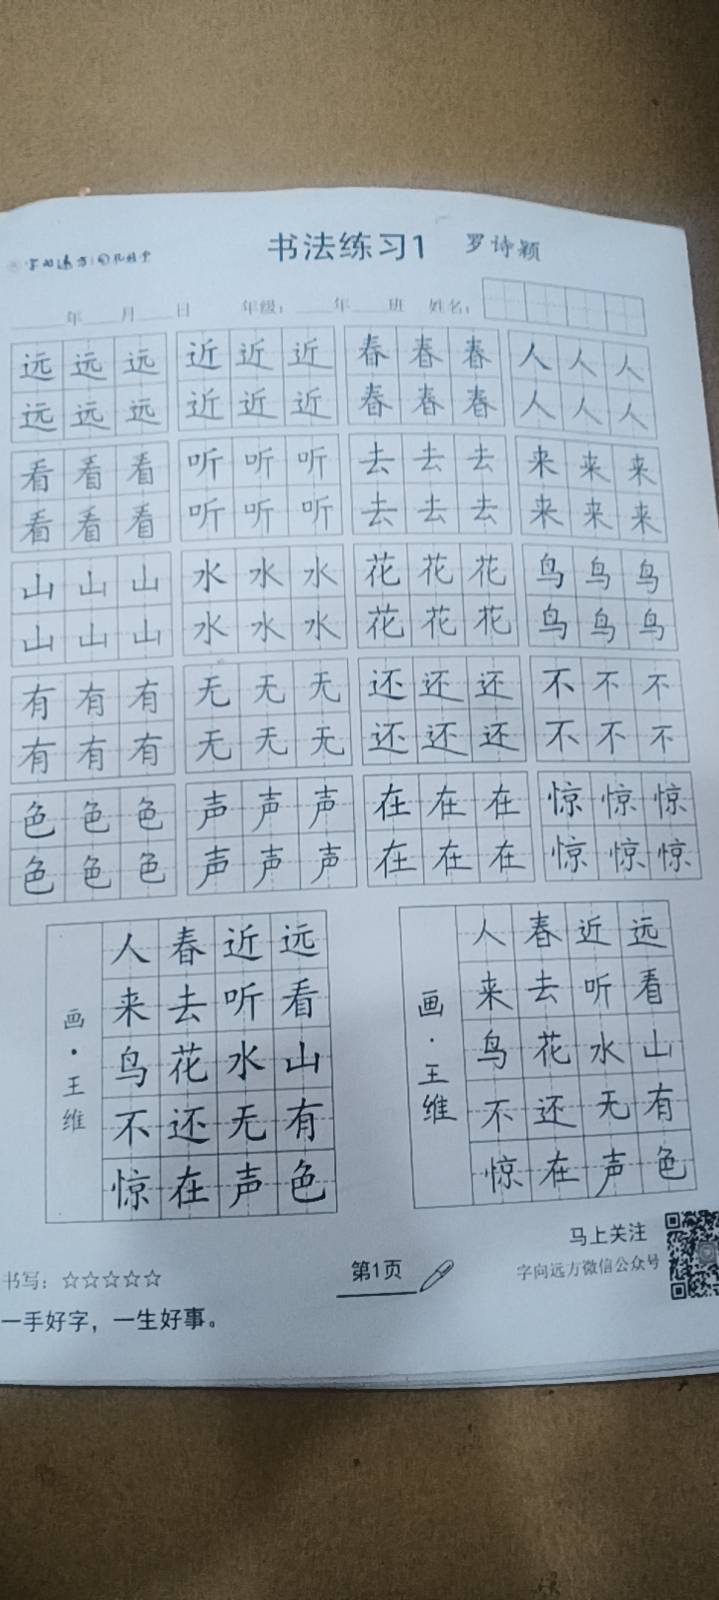 书法练习1 罗诗颖
字向远方
年 月 日 年级: 年 班 姓名:
远远远 近近近 春春春 人人人
远远远 近近近 春春春 人人人
看看看 听听听 去去去 来来来
看看看 听听听 去去去 来来来
山山山 水水水 花花花 鸟鸟鸟
山山山 水水水 花花花 鸟鸟鸟
有有有 无无无 还还还 不不不
有有有 无无无 还还还 不不不
色色色 声声声 在在在 惊惊惊
色色色 声声声 在在在 惊惊惊
远看山有色
近听水无声
春去花还在
人来鸟不惊
画·王维
远看山有色
近听水无声
春去花还在
人来鸟不惊
画·王维
书写:☆☆☆☆☆
一手好字，一生好事。
第1页
马上关注
字向远方微信公众号